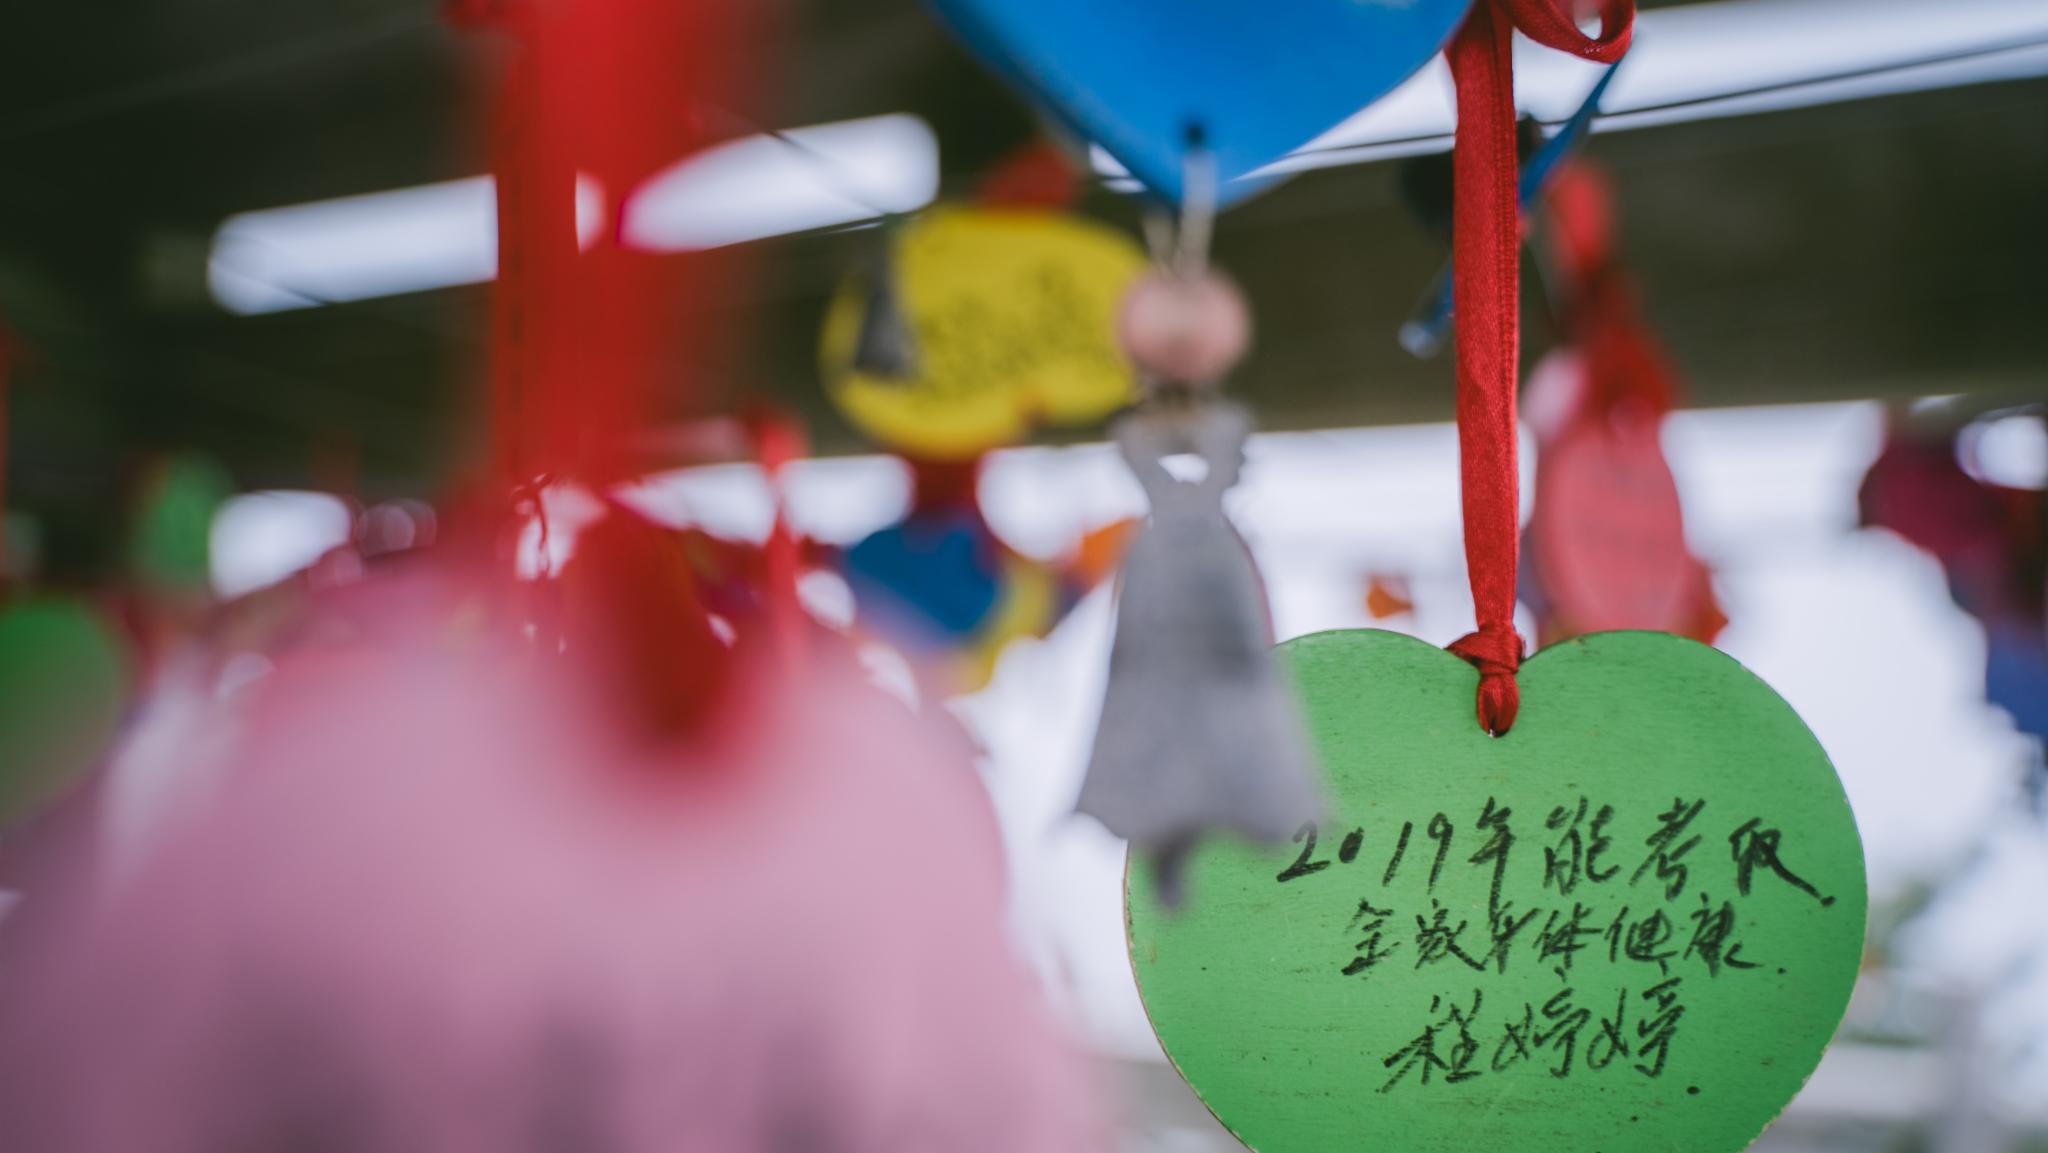 2019年能考取.
全家身体健康.
程婷婷.